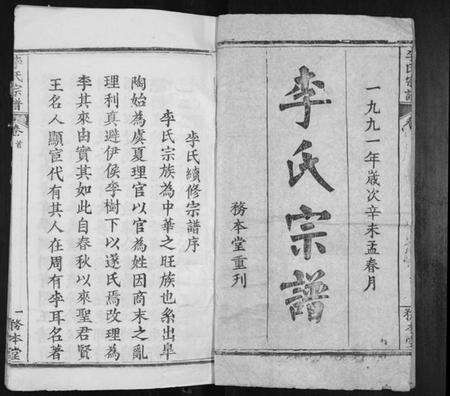 李氏宗譜
一九九一年歲次辛未孟春月
李氏宗譜
務本堂重刊
務本堂
李氏續修宗譜序
李氏宗族為中華之旺族也系出皐
陶始為虞夏理官以官為姓因商末之亂
理利真避伊侯李樹下以遂氏焉改理為
李其來由實其如此自春秋以來聖君賢
王名人顯宦代有其人在周有李耳名著
李氏宗譜
卷首
一
務本堂